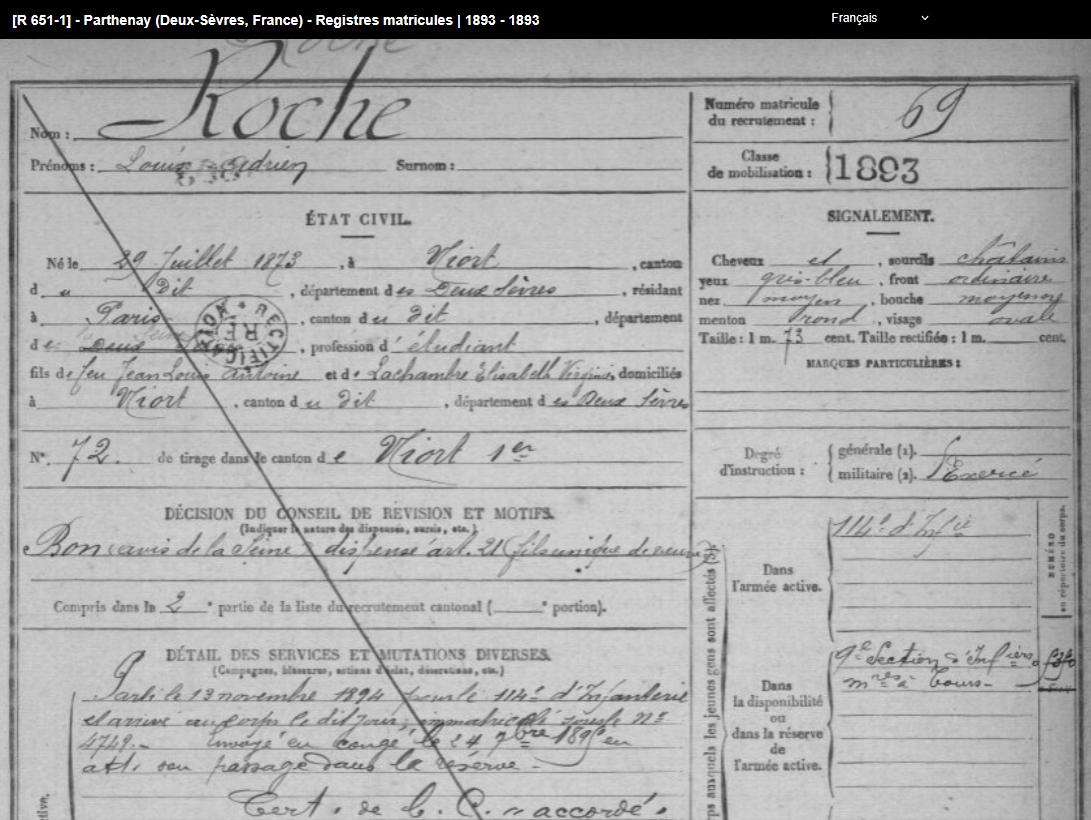 [R 651-1] - Parthenay (Deux-Sèvres, France) - Registres matricules | 1893 - 1893
Français
Roche
Nom : Roche
Prénoms : Louis Adrien Surnom :
Numéro matricule du recrutement : 69
Classe de mobilisation : 1893
ÉTAT CIVIL.
Né le 29 Juillet 1873, à Niort, canton
d u dit, département des Deux Sèvres, résidant
à Paris, canton du dit, département
de Deux Sèvres, profession d'étudiant
RECTIFICATION
fils de feu Jean Louis Antoine et de Lachambre Elisabeth Virginie, domiciliés
à Niort, canton du dit, département des Deux Sèvres
N° 72. de tirage dans le canton de Niort 1er
SIGNALEMENT.
Cheveux et, sourcils châtains
yeux gris-bleu, front ordinaire
nez moyen, bouche moyenne
menton rond, visage ovale
Taille : 1 m. 73 cent. Taille rectifiée : 1 m. cent.
MARQUES PARTICULIÈRES :
Degré d'instruction : générale (1).
militaire (2). Exercé
DÉCISION DU CONSEIL DE REVISION ET MOTIFS.
(Indiquer la nature des dispenses, sursis, etc.)
Bon (avis de la Seine) dispensé art. 21 (fils unique de veuve)
Compris dans la 2e partie de la liste du recrutement cantonal ( e portion).
DÉTAIL DES SERVICES ET MUTATIONS DIVERSES.
(Campagnes, blessures, actions d'éclat, décorations, etc.)
Parti le 13 novembre 1894 pour le 114e d'Infanterie
et arrivé au corps le dit jour, immatriculé sous le N°
4749.- Envoyé en congé le 24 7bre 1895 en
att. son passage dans la réserve.-
Cert. de b. C. accordé.
corps auxquels les jeunes gens sont affectés (3).
NUMÉRO au répertoire du corps.
Dans l'armée active.
114e d'Infie
Dans la disponibilité ou dans la réserve de l'armée active.
9e Section d'Infiers
mres à Tours-